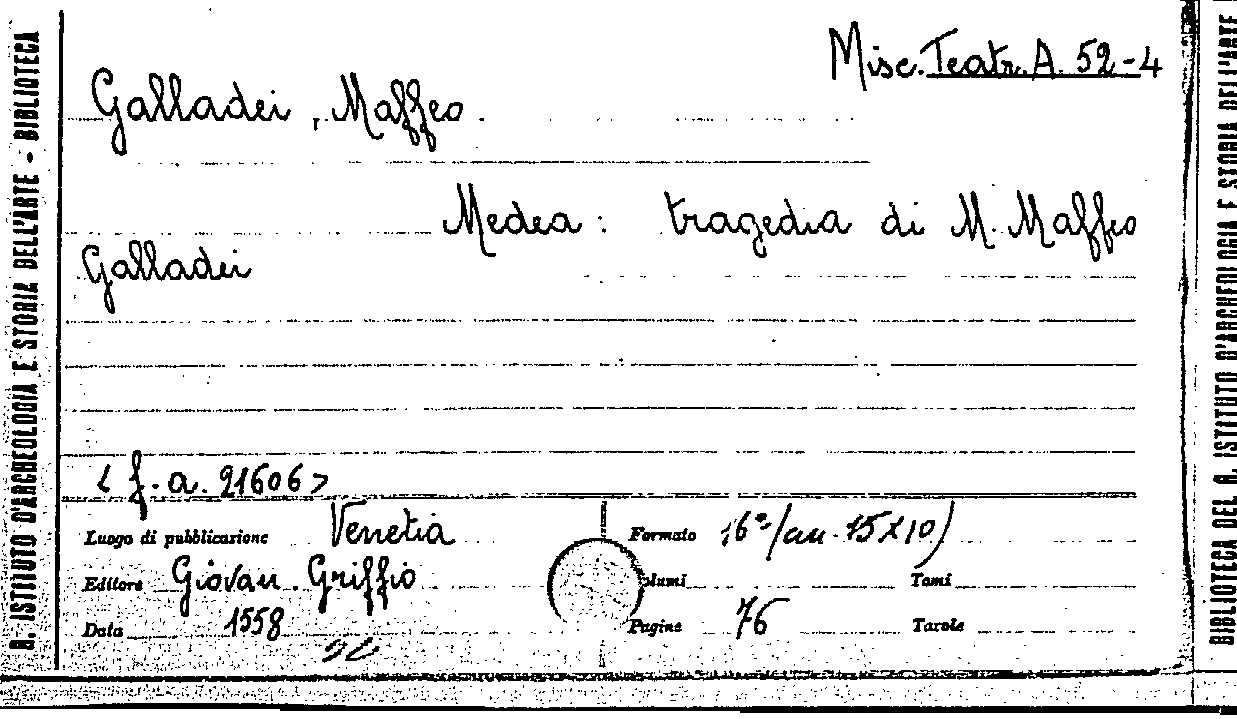 Misc. Teatr. A. 52-4
Galladei, Maffeo.
Medea: tragedia di M. Maffeo
Galladei
< f. a. 21606 >
Luogo di pubblicazione Venetia
Formato 16° (cm. 15x10)
Editore Giovan. Griffio
lumi
Tomi
Data 1558
Pagine 76
Tavole
R. ISTITUTO D'ARCHEOLOGIA E STORIA DELL'ARTE - BIBLIOTECA
BIBLIOTECA DEL R. ISTITUTO D'ARCHEOLOGIA E STORIA DELL'ARTE